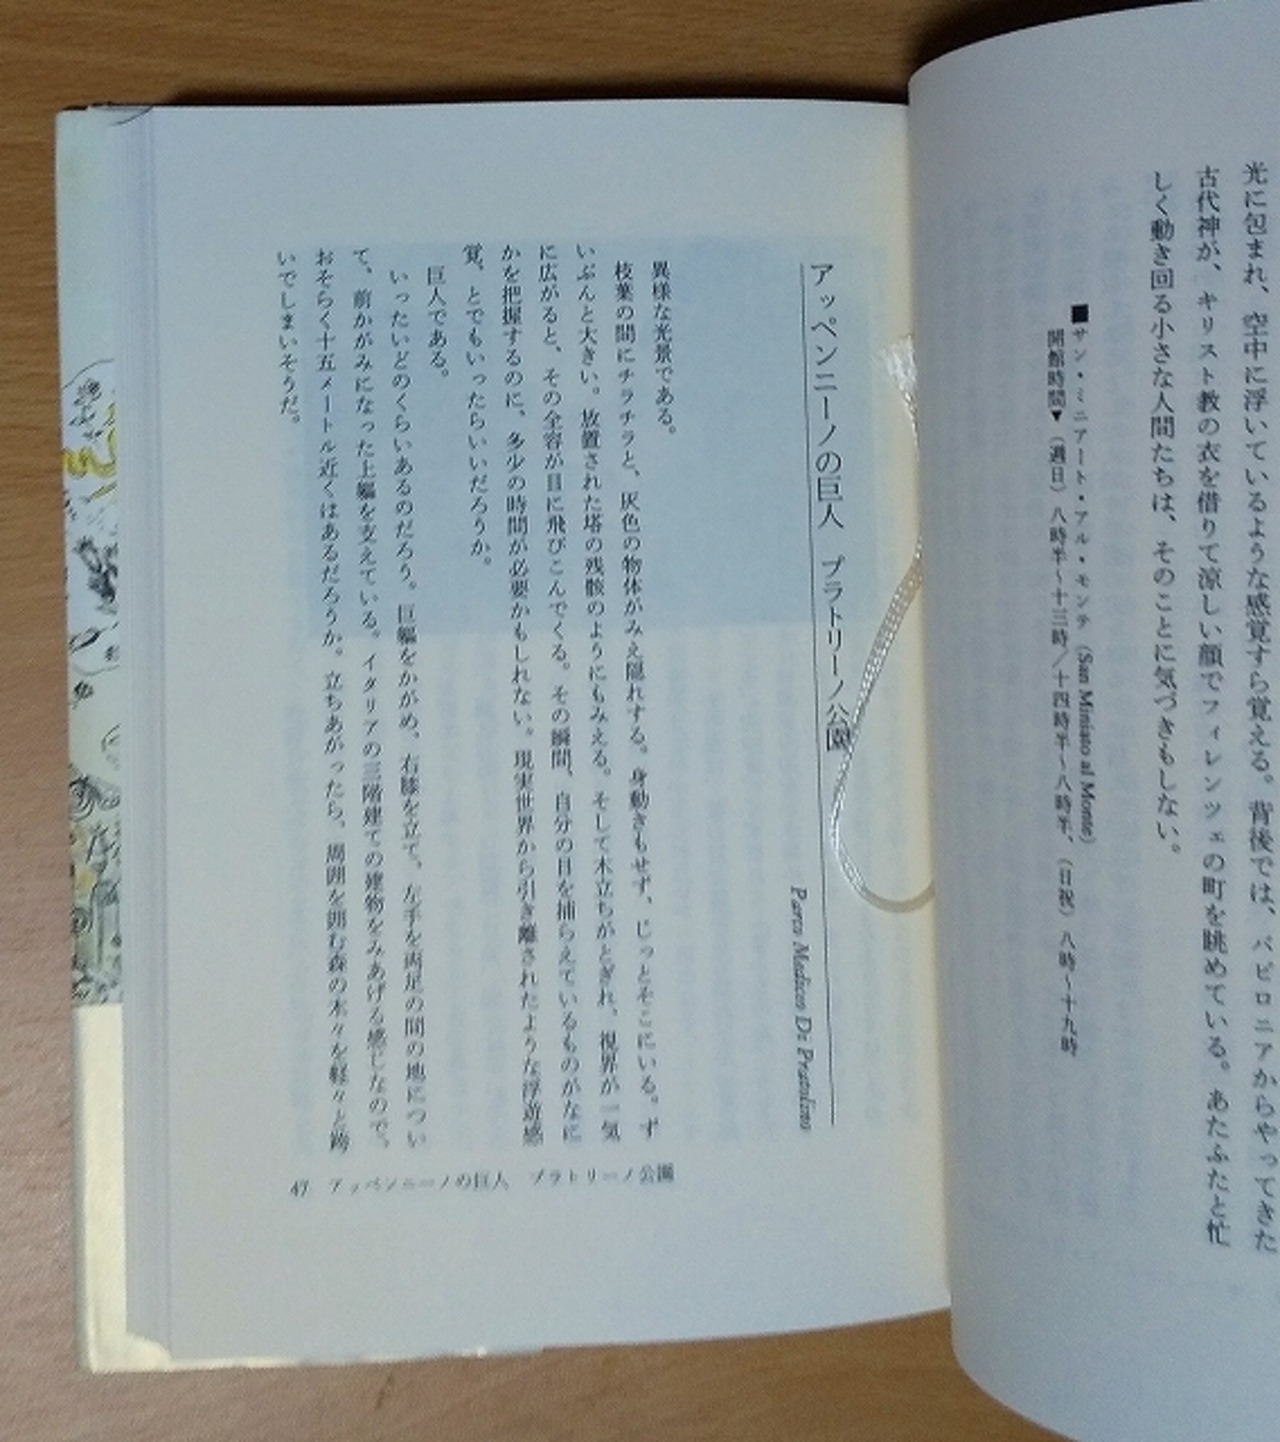 光に包まれ、空中に浮いているような感覚すら覚える。背後では、バビロニアからやってきた
古代神が、キリスト教の衣を借りて涼しい顔でフィレンツェの町を眺めている。あたふたと忙
しく動き回る小さな人間たちは、そのことに気づきもしない。
■サン・ミニアート・アル・モンテ (San Miniato al Monte)
開館時間▼（週日）八時半〜十三時／十四時半〜八時半、（日祝）八時〜十九時
アッペンニーノの巨人 プラトリーノ公園
Parco Mediceo Di Pratolino
異様な光景である。
枝葉の間にチラチラと、灰色の物体がみえ隠れする。身動きもせず、じっとそこにいる。ず
いぶんと大きい。放置された塔の残骸のようにもみえる。そして木立ちがとぎれ、視界が一気
に広がると、その全容が目に飛びこんでくる。その瞬間、自分の目を捕らえているものがなに
かを把握するのに、多少の時間が必要かもしれない。現実世界から引き離されたような浮遊感
覚、とでもいったらいいだろうか。
巨人である。
いったいどのくらいあるのだろう。巨軀をかがめ、右膝を立て、左手を両足の間の地につい
て、前かがみになった上軀を支えている。イタリアの三階建ての建物をみあげる感じなので、
おそらく十五メートル近くはあるだろうか。立ちあがったら、周囲を囲む森の木々を軽々と跨
いでしまいそうだ。
47 アッペンニーノの巨人 プラトリーノ公園